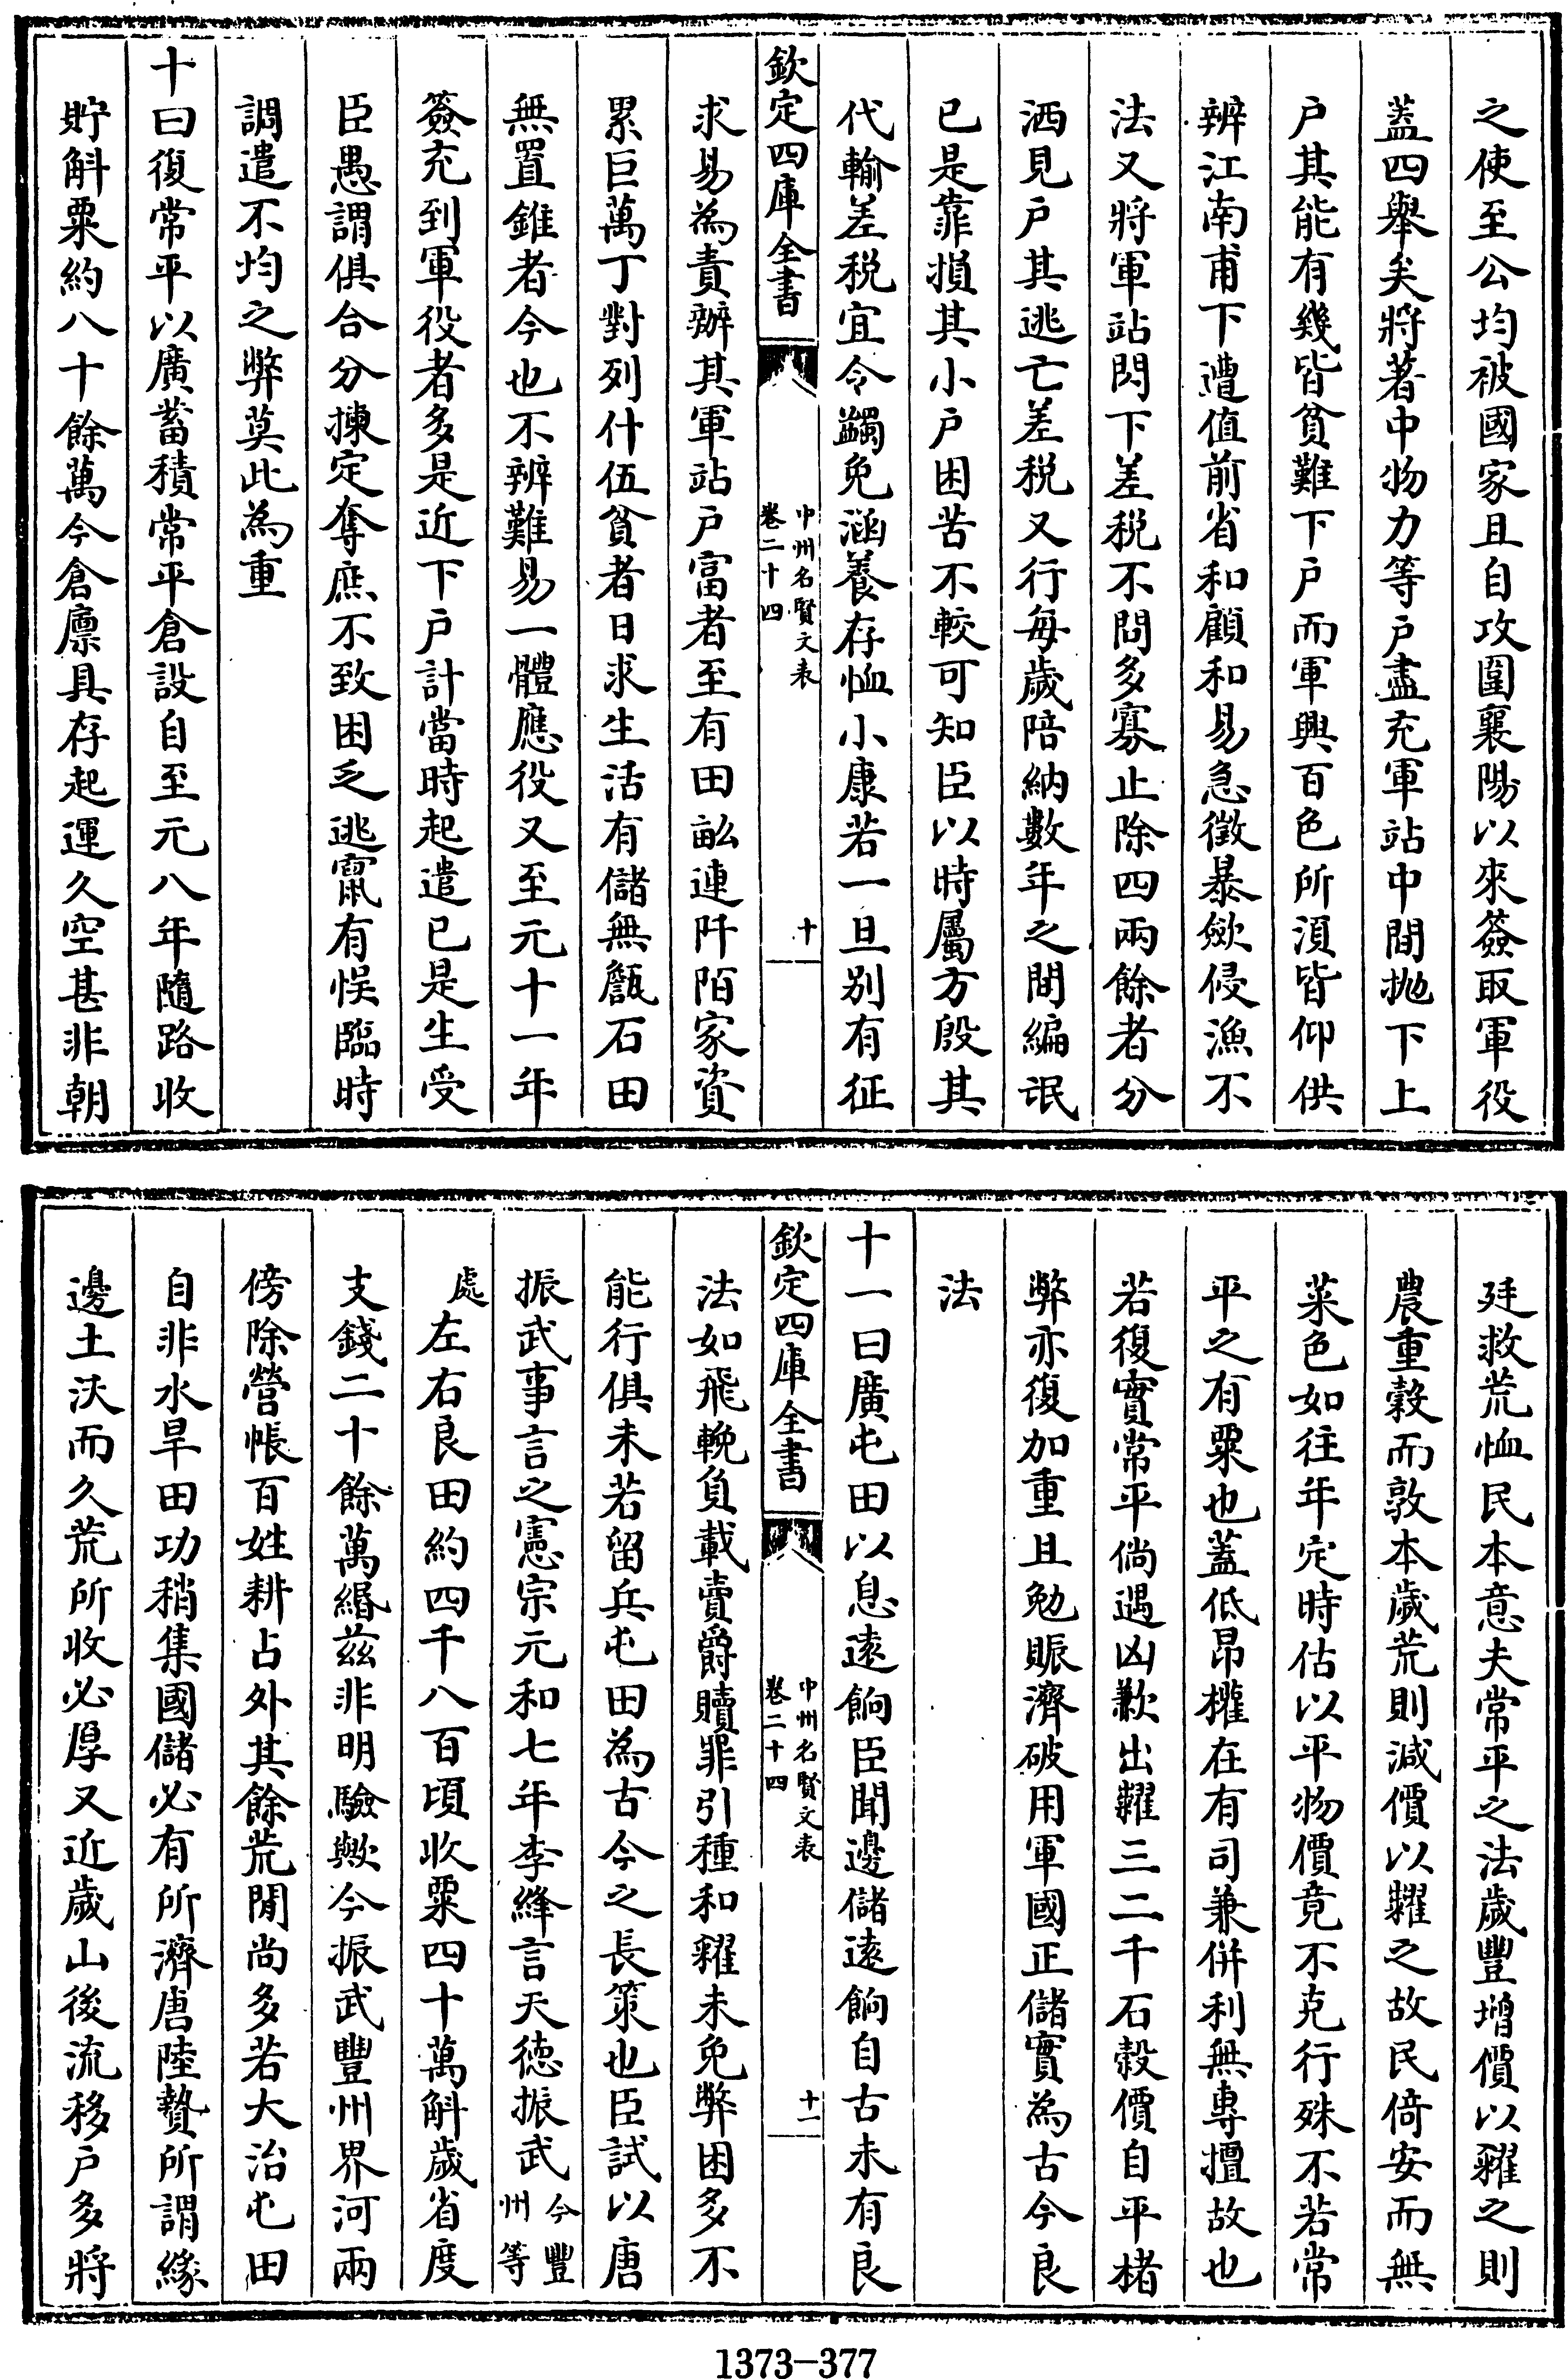 之使至公均被國家且自攻圍襄陽以來簽取軍役
蓋四舉矣將著中物力等户盡充軍站中間拋下上
户其能有幾皆貧難下户而軍興百色所湏皆仰供
辨江南甫下遭值前省和顧和易急徵暴斂侵漁不
法又將軍站閃下差税不問多寡止除四兩餘者分
洒見户其逃亡差税又行每歲陪納數年之間編氓
已是靠損其小户困苦不較可知臣以時屬方殷其
代輸差税宜令蠲免涵養存恤小康若一旦别有征
欽定四庫全書
中州名賢文表
卷二十四
十
求易為責辦其軍站户富者至有田畝連阡陌家資
累巨萬丁對列什伍貧者日求生活有儲無甔石田
無置錐者今也不辨難易一體應役又至元十一年
簽充到軍役者多是近下户計當時起遣已是生受
臣愚謂俱合分揀定奪庶不致困乏逃竄有悞臨時
調遣不均之弊莫此為重
十曰復常平以廣蓄積常平倉設自至元八年隨路收
貯斛粟約八十餘萬今倉廪具存起運久空甚非朝
廷救荒恤民本意夫常平之法歲豐增價以糴之則
農重穀而敦本歲荒則減價以糶之故民倚安而無
菜色如往年定時估以平物價竟不克行殊不若常
平之有粟也蓋低昂權在有司兼併利無專擅故也
若復實常平倘遇凶歉出糶三二千石穀價自平楮
弊亦復加重且勉賑濟破用軍國正儲實為古今良
法
十一曰廣屯田以息逺餉臣聞邊儲逺餉自古未有良
欽定四庫全書
中州名賢文表
卷二十四
十一
法如飛輓負載賣爵贖罪引種和糴未免弊困多不
能行俱未若留兵屯田為古今之長策也臣試以唐
振武事言之憲宗元和七年李絳言天德振武今豐州等
處左右良田約四千八百頃收粟四十萬斛歲省度
支錢二十餘萬緡兹非明驗歟今振武豐州界河兩
傍除營帳百姓耕占外其餘荒閒尚多若大治屯田
自非水旱田功稍集國儲必有所濟唐陸贄所謂緣
邊土沃而久荒所收必厚又近歲山後流移户多將
1373-377